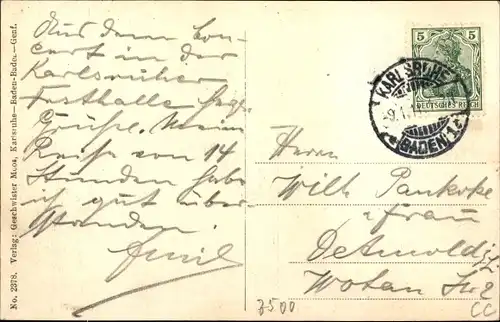 Aus dem Con-
cert in der
Karlsruher
Festhalle
Grüße. Meine
Reise von 14
Stunden habe
ich gut über
standen.
Emil
Herrn
Wilh. Pankoke
u Frau
Detmold i/L
Wotan Str 2
5 5
DEUTSCHES REICH
KARLSRUHE
BADEN 1
No. 2378. Verlag: Geschwister Moos, Karlsruhe—Baden-Baden.—Genf.
3500
CC